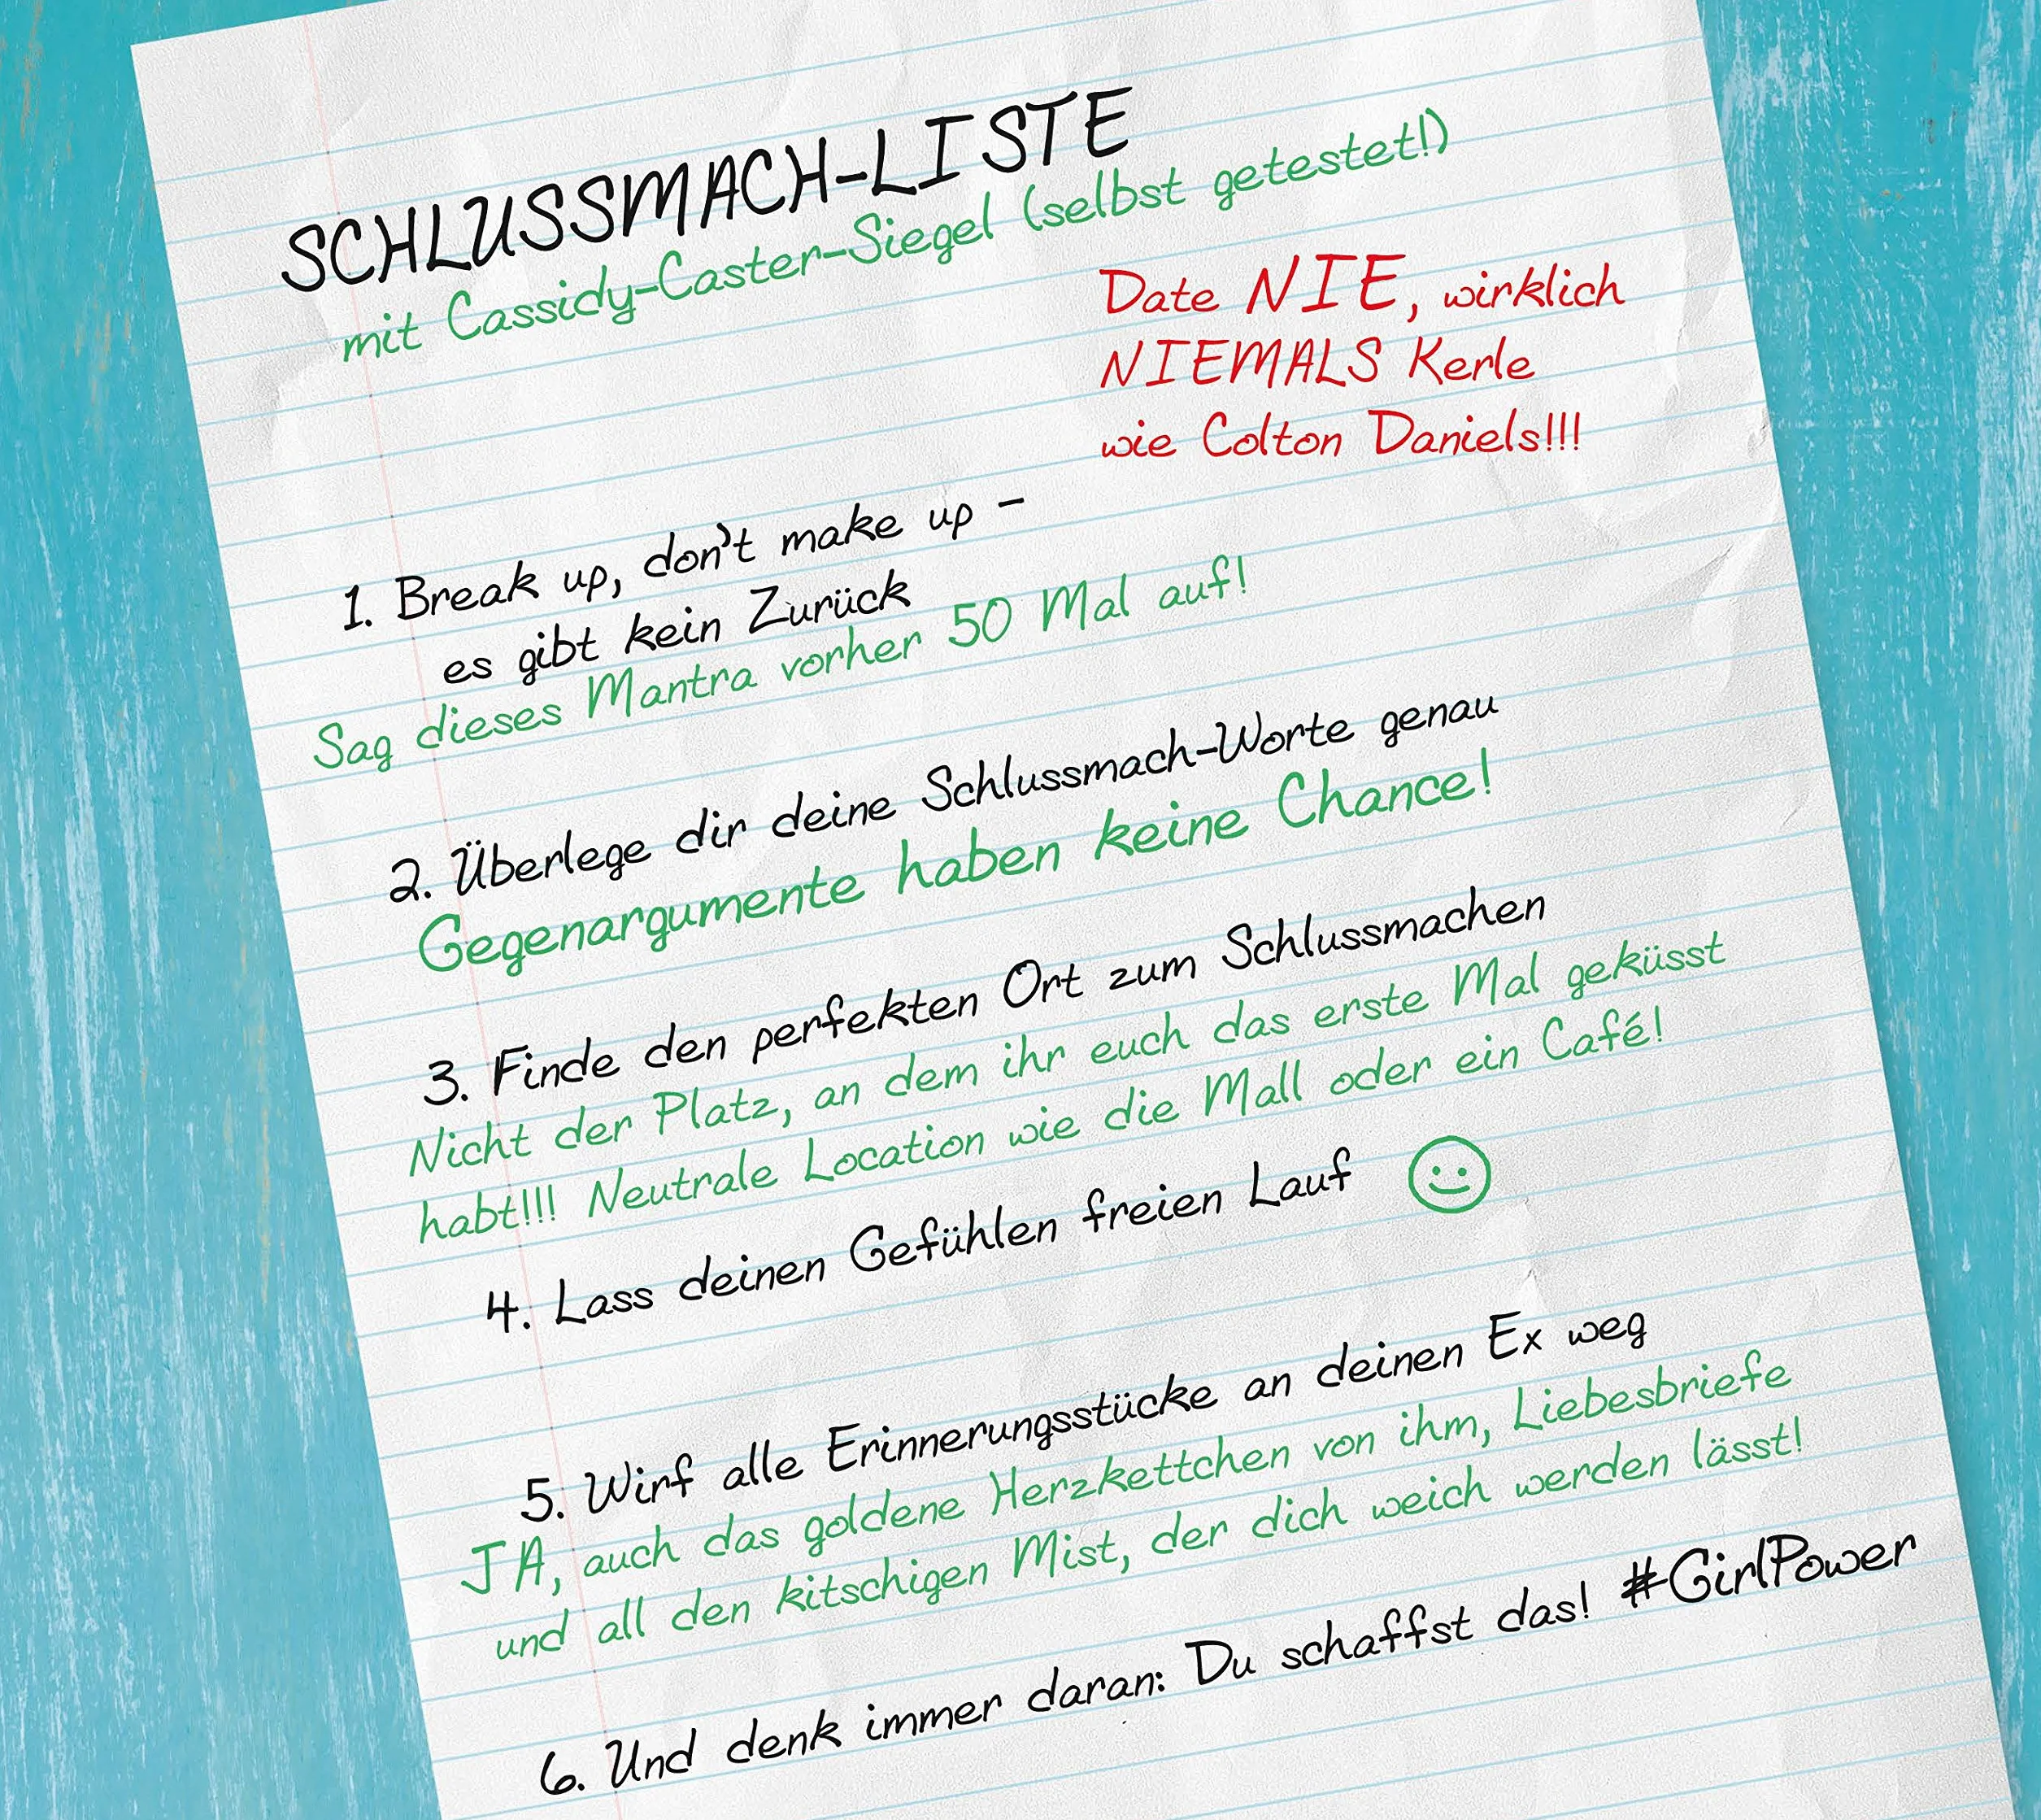 SCHLUSSMACH-LISTE
mit Cassidy-Caster-Siegel (selbst getestet!)
Date NIE, wirklich
NIEMALS Kerle
wie Colton Daniels!!!
1. Break up, don't make up –
es gibt kein Zurück
Sag dieses Mantra vorher 50 Mal auf!
2. Überlege dir deine Schlussmach-Worte genau
Gegenargumente haben keine Chance!
3. Finde den perfekten Ort zum Schlussmachen
Nicht der Platz, an dem ihr euch das erste Mal geküsst
habt!!! Neutrale Location wie die Mall oder ein Café!
4. Lass deinen Gefühlen freien Lauf
5. Wirf alle Erinnerungsstücke an deinen Ex weg
JA, auch das goldene Herzkettchen von ihm, Liebesbriefe
und all den kitschigen Mist, der dich weich werden lässt!
6. Und denk immer daran: Du schaffst das! #GirlPower